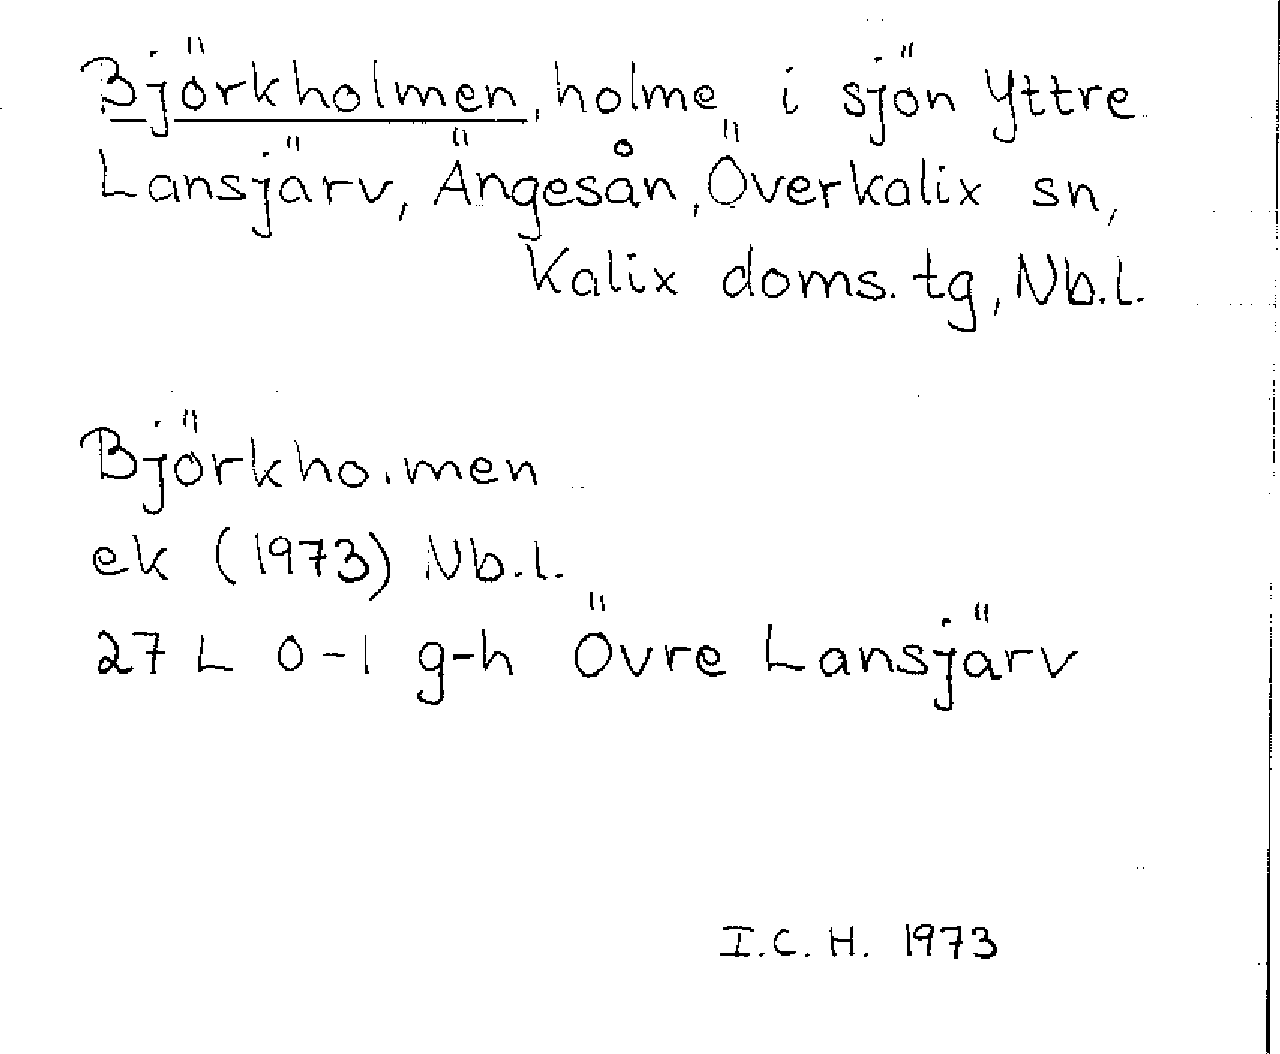 Björkholmen, holme i sjön Yttre
Lansjärv, Ängesån, Överkalix sn,
Kalix doms. tg, Nb.l.
Björkholmen
ek (1973) Nb.l.
27 L 0-1 g-h Övre Lansjärv
I.C.H. 1973